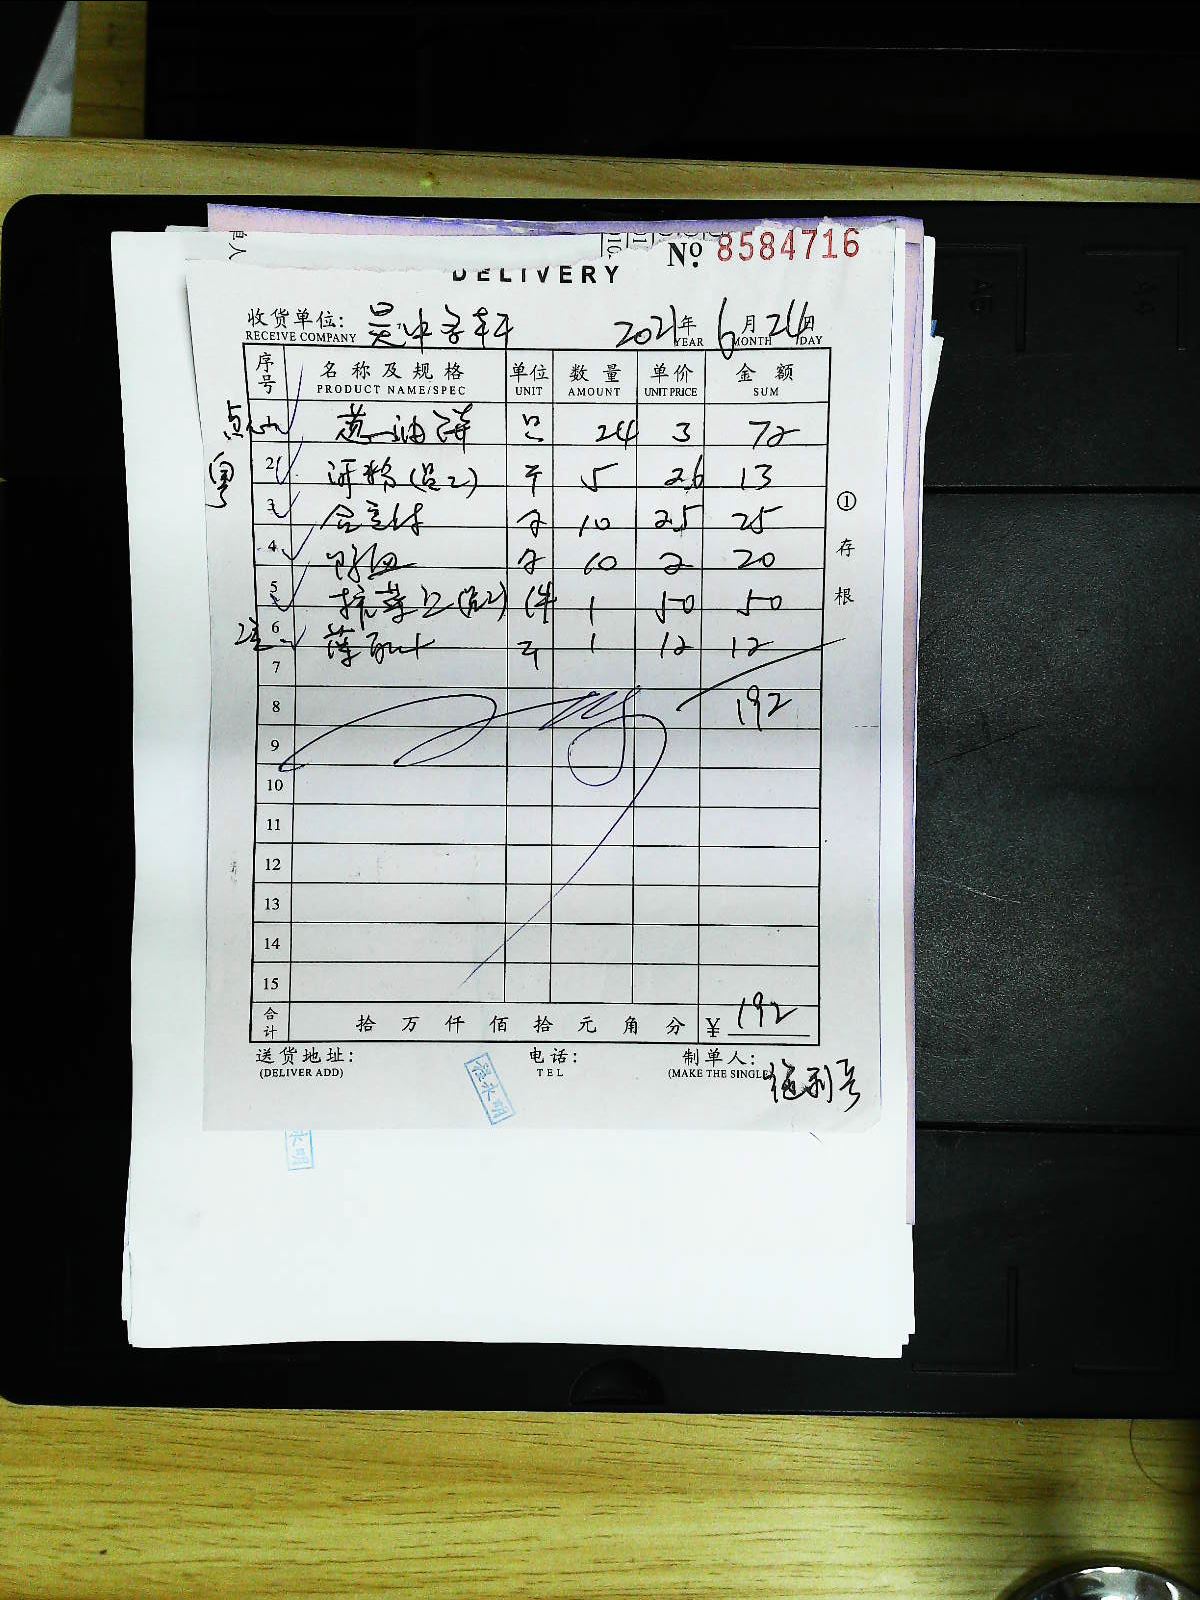 DELIVERY
No. 8584716
收货单位: 吴中
RECEIVE COMPANY
2021年 6月24日
YEAR MONTH DAY
序号 名称及规格 单位 数量 单价 金额
PRODUCT NAME/SPEC UNIT AMOUNT UNIT PRICE SUM
点心 葱油饼 只 24 3 72
粤 2 河粉 斤 5 2.6 13
3 10 2.5 25
4 鸭血 10 2 20
5 件 1 50 50
6 薄 斤 1 12 12
7
8 192
9
10
11
12
13
14
15
合计 拾 万 仟 佰 拾 元 角 分 ¥ 192
送货地址: 电话: 制单人:
(DELIVER ADD) TEL (MAKE THE SINGLE
①存根
永明
永明